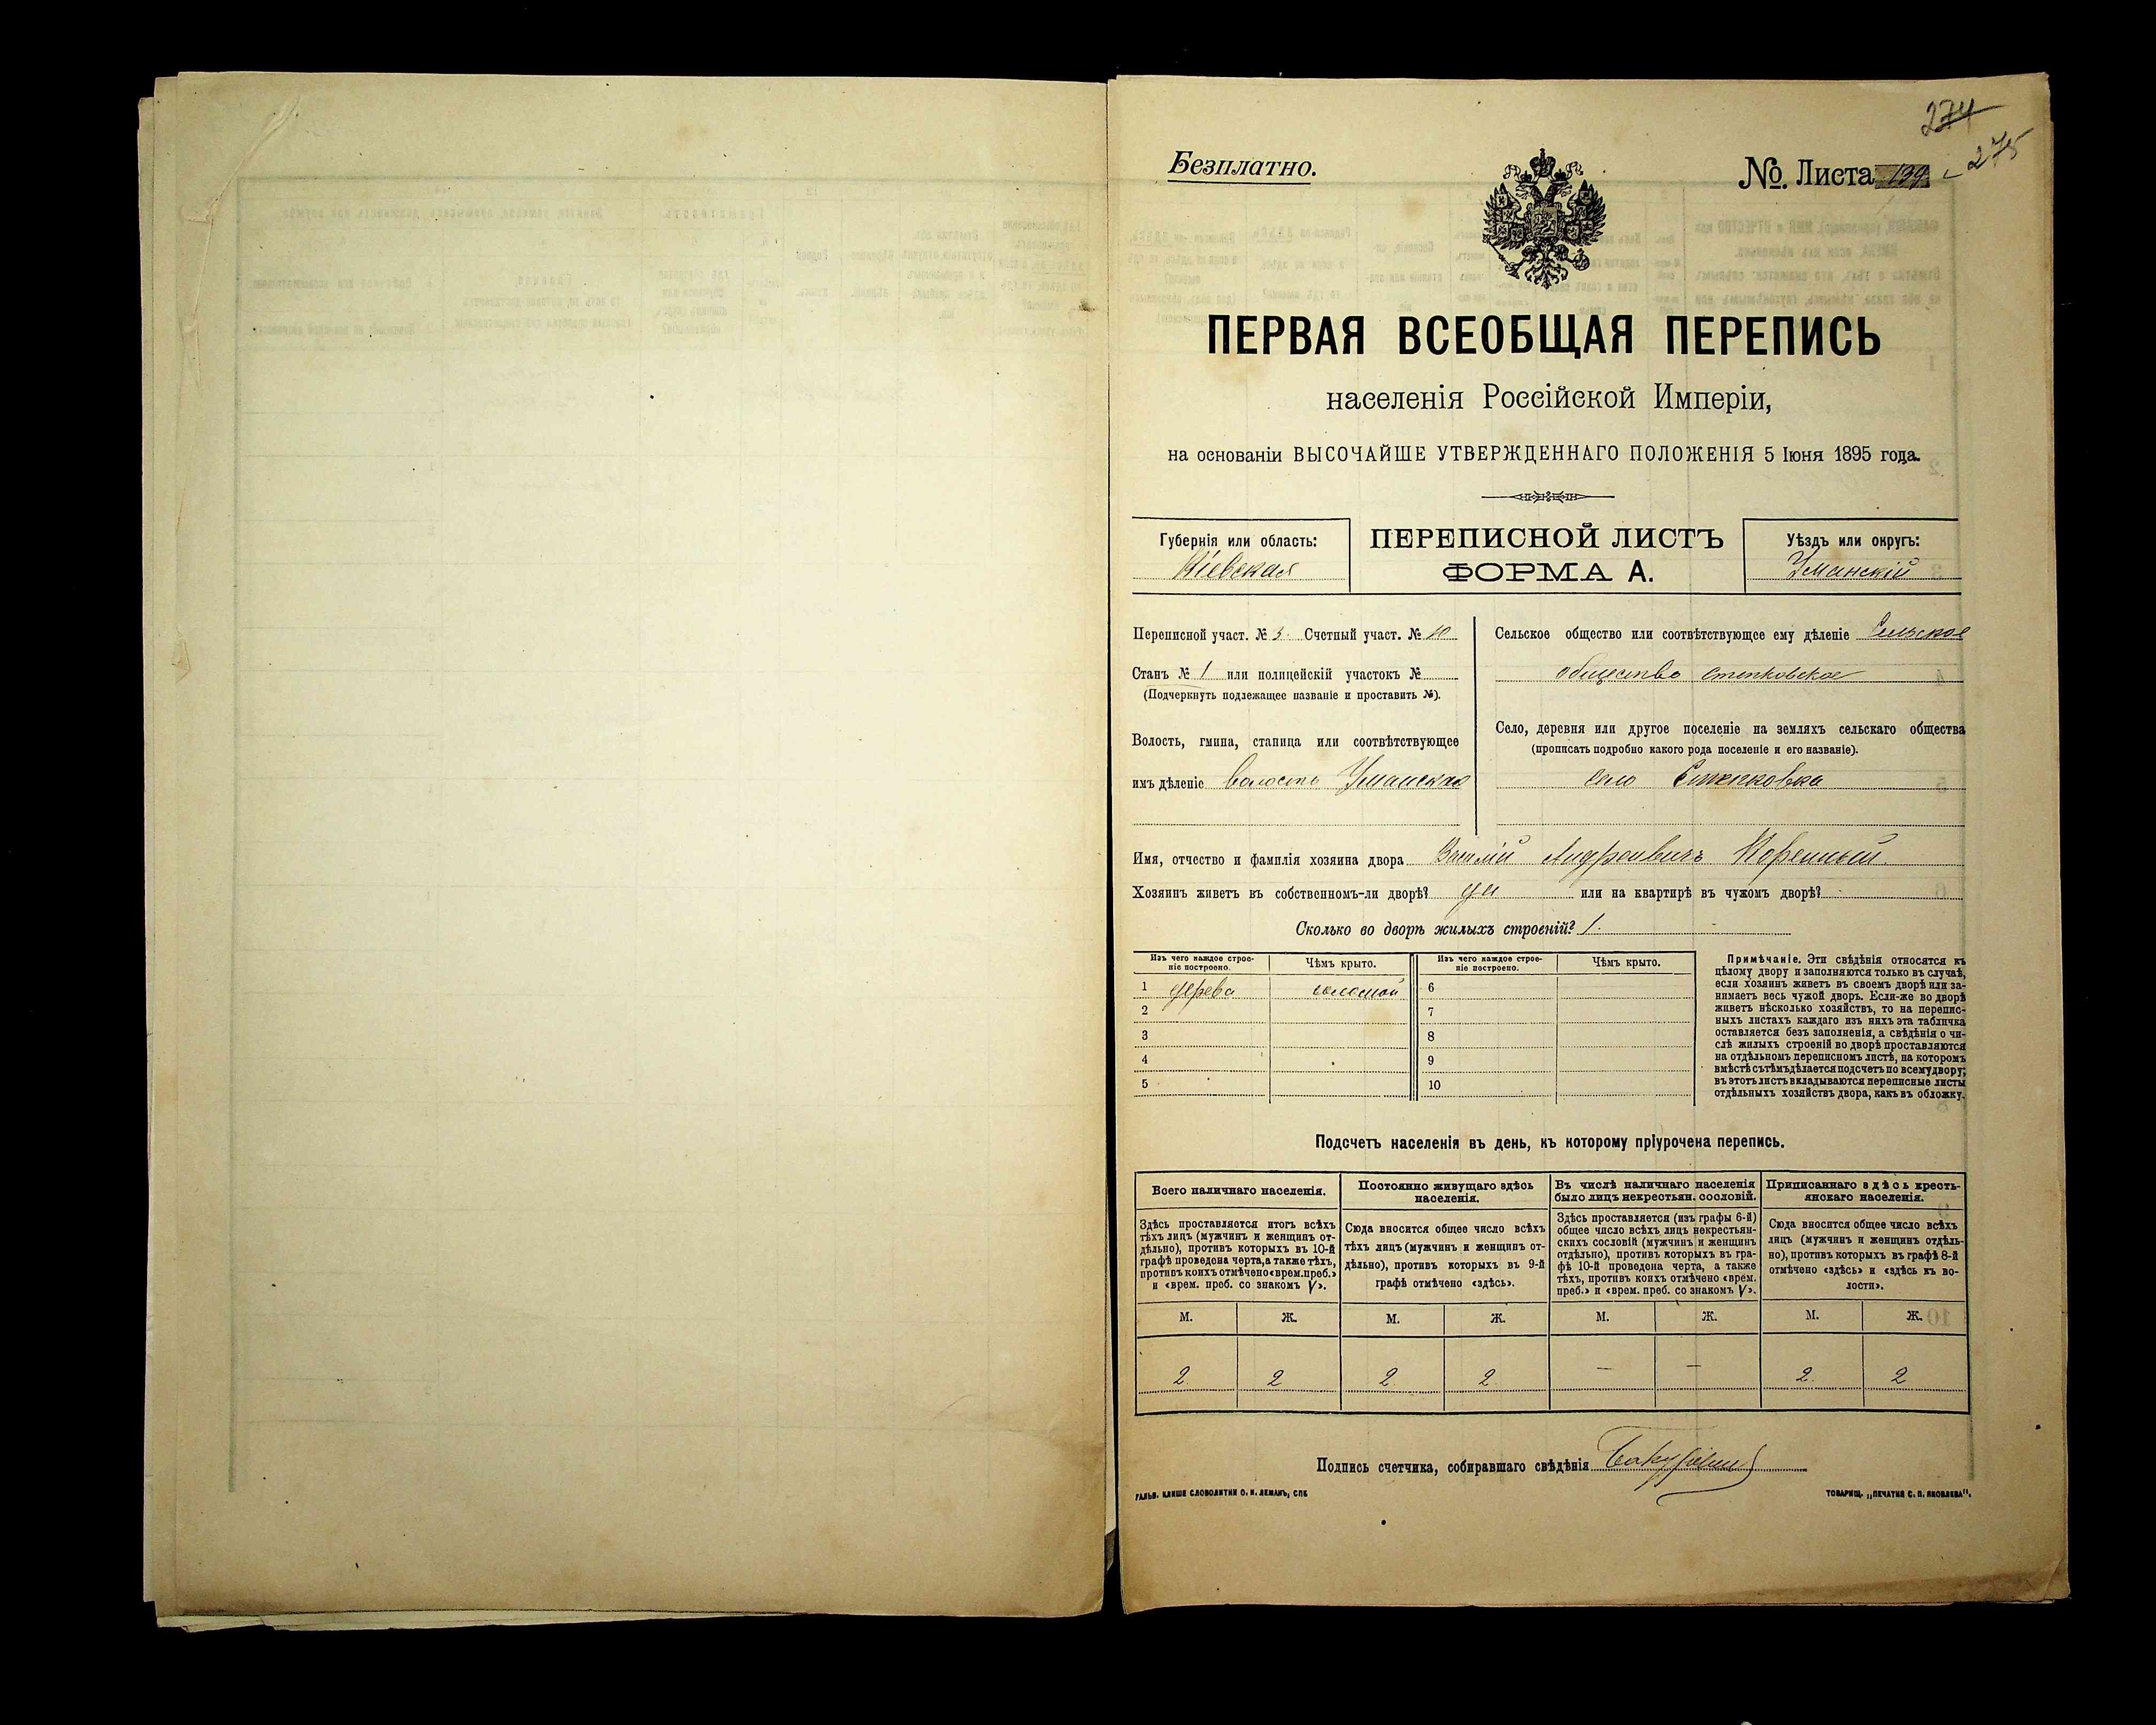 274
275
Безплатно.
№. Листа 199
ПЕРВАЯ ВСЕОБЩАЯ ПЕРЕПИСЬ
населенія Россійской Имперіи,
на основаніи ВЫСОЧАЙШЕ УТВЕРЖДЕННАГО ПОЛОЖЕНІЯ 5 Іюня 1895 года.
Губернія или область:
Кіевская
ПЕРЕПИСНОЙ ЛИСТЪ
ФОРМА А.
Уѣздъ или округъ:
Уманскій
Переписной участ. № 3. Счетный участ. № 10
Станъ № 1 или полицейскій участокъ №
(Подчеркнуть подлежащее названіе и проставить №).
Волость, гмина, станица или соотвѣтствующее
имъ дѣленіе волость Уманская
Сельское общество или соотвѣтствующее ему дѣленіе Сельское
общество степковское
Село, деревня или другое поселеніе на земляхъ сельскаго общества
(прописать подробно какого рода поселеніе и его названіе).
село Степковка
Имя, отчество и фамилія хозяина двора Василій Андреевичъ Коренный.
Хозяинъ живетъ въ собственномъ-ли дворѣ? да или на квартирѣ въ чужомъ дворѣ? -
Сколько во дворѣ жилыхъ строеній? 1.
Изъ чего каждое строе-
ніе построено.
Чѣмъ крыто.
Изъ чего каждое строе-
ніе построено.
Чѣмъ крыто.
1 дерева соломой 6
2 7
3 8
4 9
5 10
Примѣчаніе. Эти свѣдѣнія относятся къ
цѣлому двору и заполняются только въ случаѣ,
если хозяинъ живетъ въ своемъ дворѣ или за-
нимаетъ весь чужой дворъ. Если-же во дворѣ
живетъ нѣсколько хозяйствъ, то на перепис-
ныхъ листахъ каждаго изъ нихъ эта табличка
оставляется безъ заполненія, а свѣдѣнія о чи-
слѣ жилыхъ строеній во дворѣ проставляются
на отдѣльномъ переписномъ листѣ, на которомъ
вмѣстѣ съ тѣмъ дѣлается подсчетъ по всему двору;
въ этотъ листъ вкладываются переписные листы
отдѣльныхъ хозяйствъ двора, какъ въ обложку.
Подсчетъ населенія въ день, къ которому пріурочена перепись.
Всего наличнаго населенія.
Здѣсь проставляется итогъ всѣхъ
тѣхъ лицъ (мужчинъ и женщинъ от-
дѣльно), противъ которыхъ въ 10-й
графѣ проведена черта, а также тѣхъ,
противъ коихъ отмѣчено «врем. преб.»
и «врем. преб. со знакомъ V».
Постоянно живущаго здѣсь
населенія.
Сюда вносится общее число всѣхъ
тѣхъ лицъ (мужчинъ и женщинъ от-
дѣльно), противъ которыхъ въ 9-й
графѣ отмѣчено «здѣсь».
Въ числѣ наличнаго населенія
было лицъ некрестьян. сословій.
Здѣсь проставляется (изъ графы 6-й)
общее число всѣхъ лицъ некрестьян-
скихъ сословій (мужчинъ и женщинъ
отдѣльно), противъ которыхъ въ гра-
фѣ 10-й проведена черта, а также
тѣхъ, противъ коихъ отмѣчено «врем.
преб.» и «врем. преб. со знакомъ V».
Приписаннаго здѣсь кресть-
янскаго населенія.
Сюда вносится общее число всѣхъ
лицъ (мужчинъ и женщинъ отдѣль-
но), противъ которыхъ въ графѣ 8-й
отмѣчено «здѣсь» и «здѣсь къ во-
лости».
М. Ж. М. Ж. М. Ж. М. Ж.
2 2 2 2 — — 2 2
Подпись счетчика, собиравшаго свѣдѣнія
ГАЛЬВ. КЛИШЕ СЛОВОЛИТНИ О. И. ЛЕМАНЪ, СПБ
ТОВАРИЩ. „ПЕЧАТНЯ С. П. ЯКОВЛЕВА“.